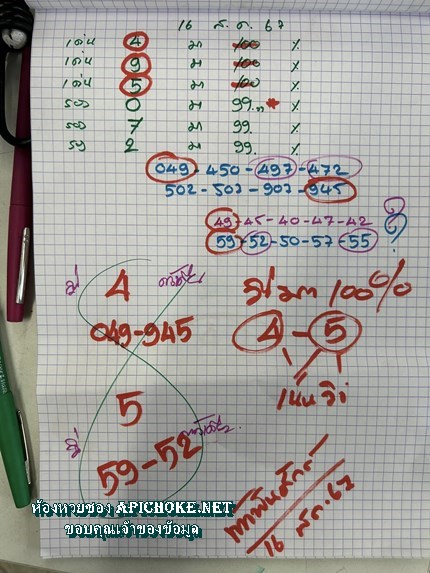 16 ส.ค. 67
เด่น 4 มา 100 %
เด่น 9 มา 100 %
เด่น 5 มา 100 %
รอง 0 มา 99 %
รอง 7 มา 99. %
รอง 2 มา 99. %
049 - 450 - 497 - 472
502 - 507 - 907 - 945
49 - 45 - 40 - 47 - 42
59 - 52 - 50 - 57 - 55
?
4
049-945
5
59-52
มา 100%
4 - 5
เน้นวิ่ง
16 ส.ค. 67
ห้องหวยของ APICHOKE.NET
ขอบคุณเจ้าของข้อมูล